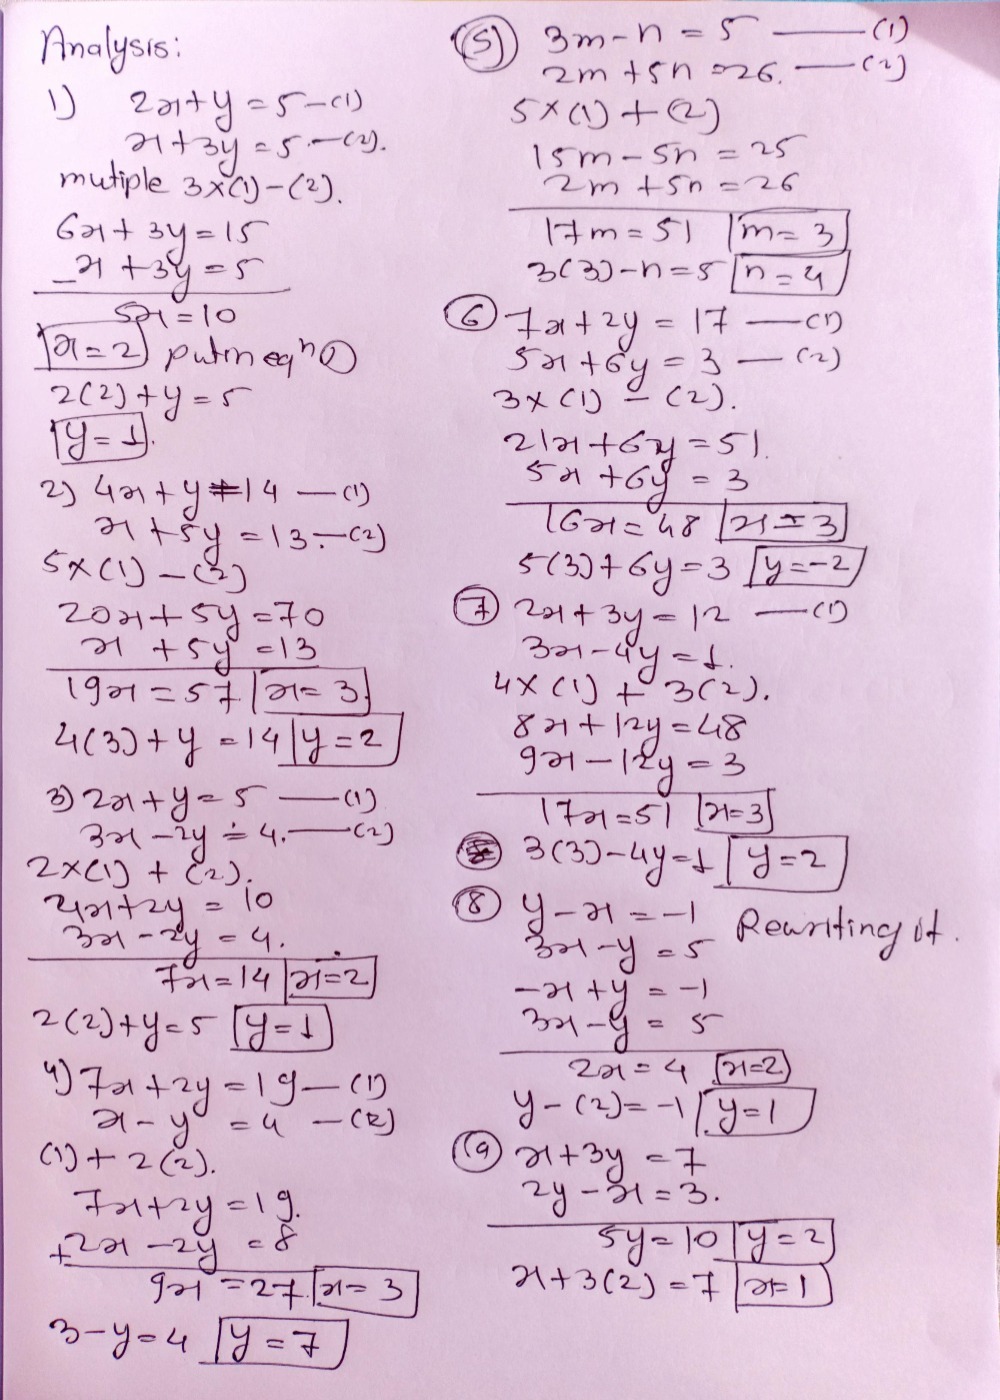 Analysis:
1) 2x+y=5-(1)
x+3y=5.-(2).
mutiple 3x(1)-(2).
6x+3y=15
-x+3y=5
5x=10
x=2 put in eqn ①
2(2)+y=5
y=1.
2) 4x+y=14 -(1)
x+5y=13.-(2)
5x(1)-(2)
20x+5y=70
x+5y=13
19x=57 x=3
4(3)+y=14 y=2
3) 2x+y=5 -(1)
3x-2y=4.-(2)
2x(1)+(2).
4x+2y=10
3x-2y=4.
7x=14 x=2
2(2)+y=5 y=1
4) 7x+2y=19-(1)
x-y=4 -(2)
(1)+2(2).
7x+2y=19.
+2x-2y=8
9x=27. x=3
3-y=4 y=7
⑤ 3m-n=5 -(1)
2m+5n=26. -(2)
5x(1)+(2)
15m-5n=25
2m+5n=26
17m=51 m=3
3(3)-n=5 n=4
⑥ 7x+2y=17 -(1)
5x+6y=3 -(2)
3x(1)-(2).
21x+6y=51.
5x+6y=3
16x=48 x=3
5(3)+6y=3 y=-2
⑦ 2x+3y=12 -(1)
3x-4y=1.
4x(1)+3(2).
8x+12y=48
9x-12y=3
17x=51 x=3
3(3)-4y=1 y=2
⑧ y-x=-1
3x-y=5 Rewriting it.
-x+y=-1
3x-y=5
2x=4 x=2
y-(2)=-1 y=1
⑨ x+3y=7
2y-x=3.
5y=10 y=2
x+3(2)=7 x=1